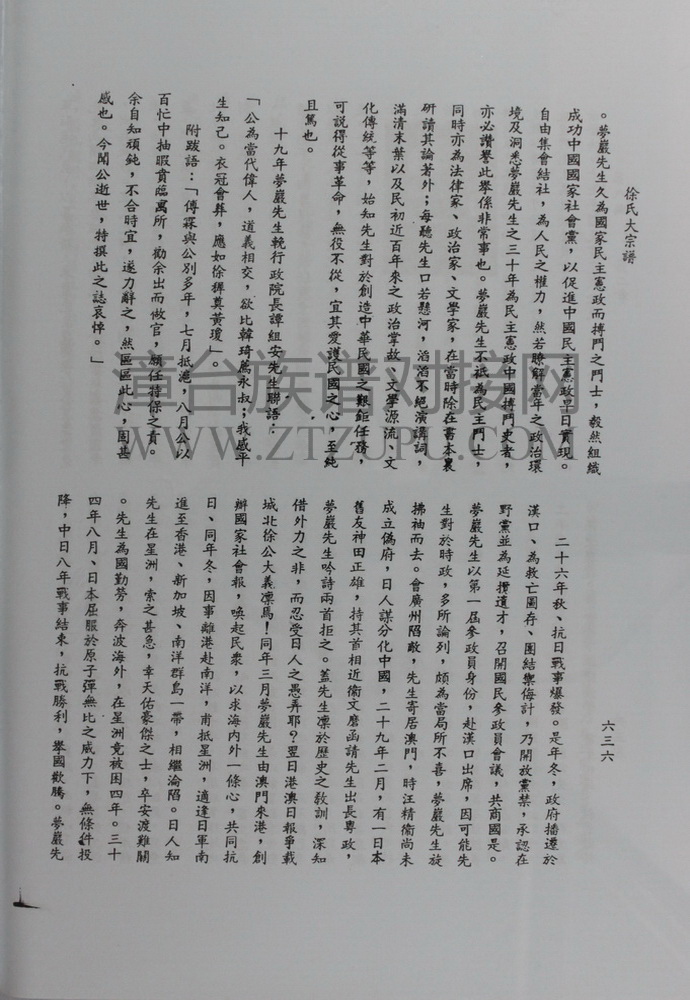 徐氏大宗譜
六三六
。夢巖先生久為國家民主憲政而搏鬥之鬥士，毅然組織
成功中國國家社會黨，以促進中國民主憲政早日實現。
自由集會結社，為人民之權力，然若瞭解當年之政治環
境及洞悉夢巖先生之三十年為民主憲政中國搏鬥史者，
亦必讚譽此舉係非常事也。夢巖先生不祗為民主鬥士，
同時亦為法律家、政治家、文學家，在當時除在書本裏
研讀其論著外；每聽先生口若懸河，滔滔不絕演講詞，
滿清末葉以及民初近百年來之政治掌故、文學源流、文
化傳統等等，始知先生對於創造中華民國之艱鉅任務，
可說得從事革命，無役不從，宜其愛護民國之心，至純
且篤也。
十九年夢巖先生輓行政院長譚組安先生聯語：
「公為當代偉人，道義相交，欲比韓琦薦永叔；我感平
生知己。衣冠會葬，應如徐穉奠黃瓊」。
附跋語：「傅霖與公別多年，七月抵滬，八月公以
百忙中抽暇賁臨寓所，勸余出而做官，願任特保之責。
余自知頑鈍，不合時宜，遂力辭之，然區區此心，固甚
感也。今聞公逝世，特撰此之誌哀悼。」
二十六年秋、抗日戰事爆發。是年冬，政府播遷於
漢口、為救亡圖存、團結禦侮計，乃開放黨禁，承認在
野黨並為延攬遺才，召開國民參政員會議，共商國是。
夢巖先生以第一屆參政員身份，赴漢口出席，因可能先
生對於時政，多所論列，頗為當局所不喜，夢巖先生旋
拂袖而去。會廣州陷敵，先生寄居澳門，時汪精衞尚未
成立偽府，日人謀分化中國，二十九年二月，有一日本
舊友神田正雄，持其首相近衞文麿函請先生出長粵政，
夢巖先生吟詩兩首拒之。蓋先生凜於歷史之教訓，深知
借外力之非，而忍受日人之愚弄耶？翌日港澳日報爭載
城北徐公大義凜焉！同年三月夢巖先生由澳門來港，創
辦國家社會報，喚起民衆，以求海內外一條心，共同抗
日、同年冬，因事離港赴南洋，甫抵星洲，適逢日軍南
進至香港、新加坡、南洋群島一帶，相繼淪陷。日人知
先生在星洲，索之甚急，幸天佑豪傑之士，卒安渡難關
。先生為國勤勞，奔波海外，在星洲竟被困四年。三十
四年八月、日本屈服於原子彈無比之威力下，無條件投
降，中日八年戰事結束，抗戰勝利，舉國歡騰。夢巖先
漳台族谱对接网
WWW.ZTZUPU.COM